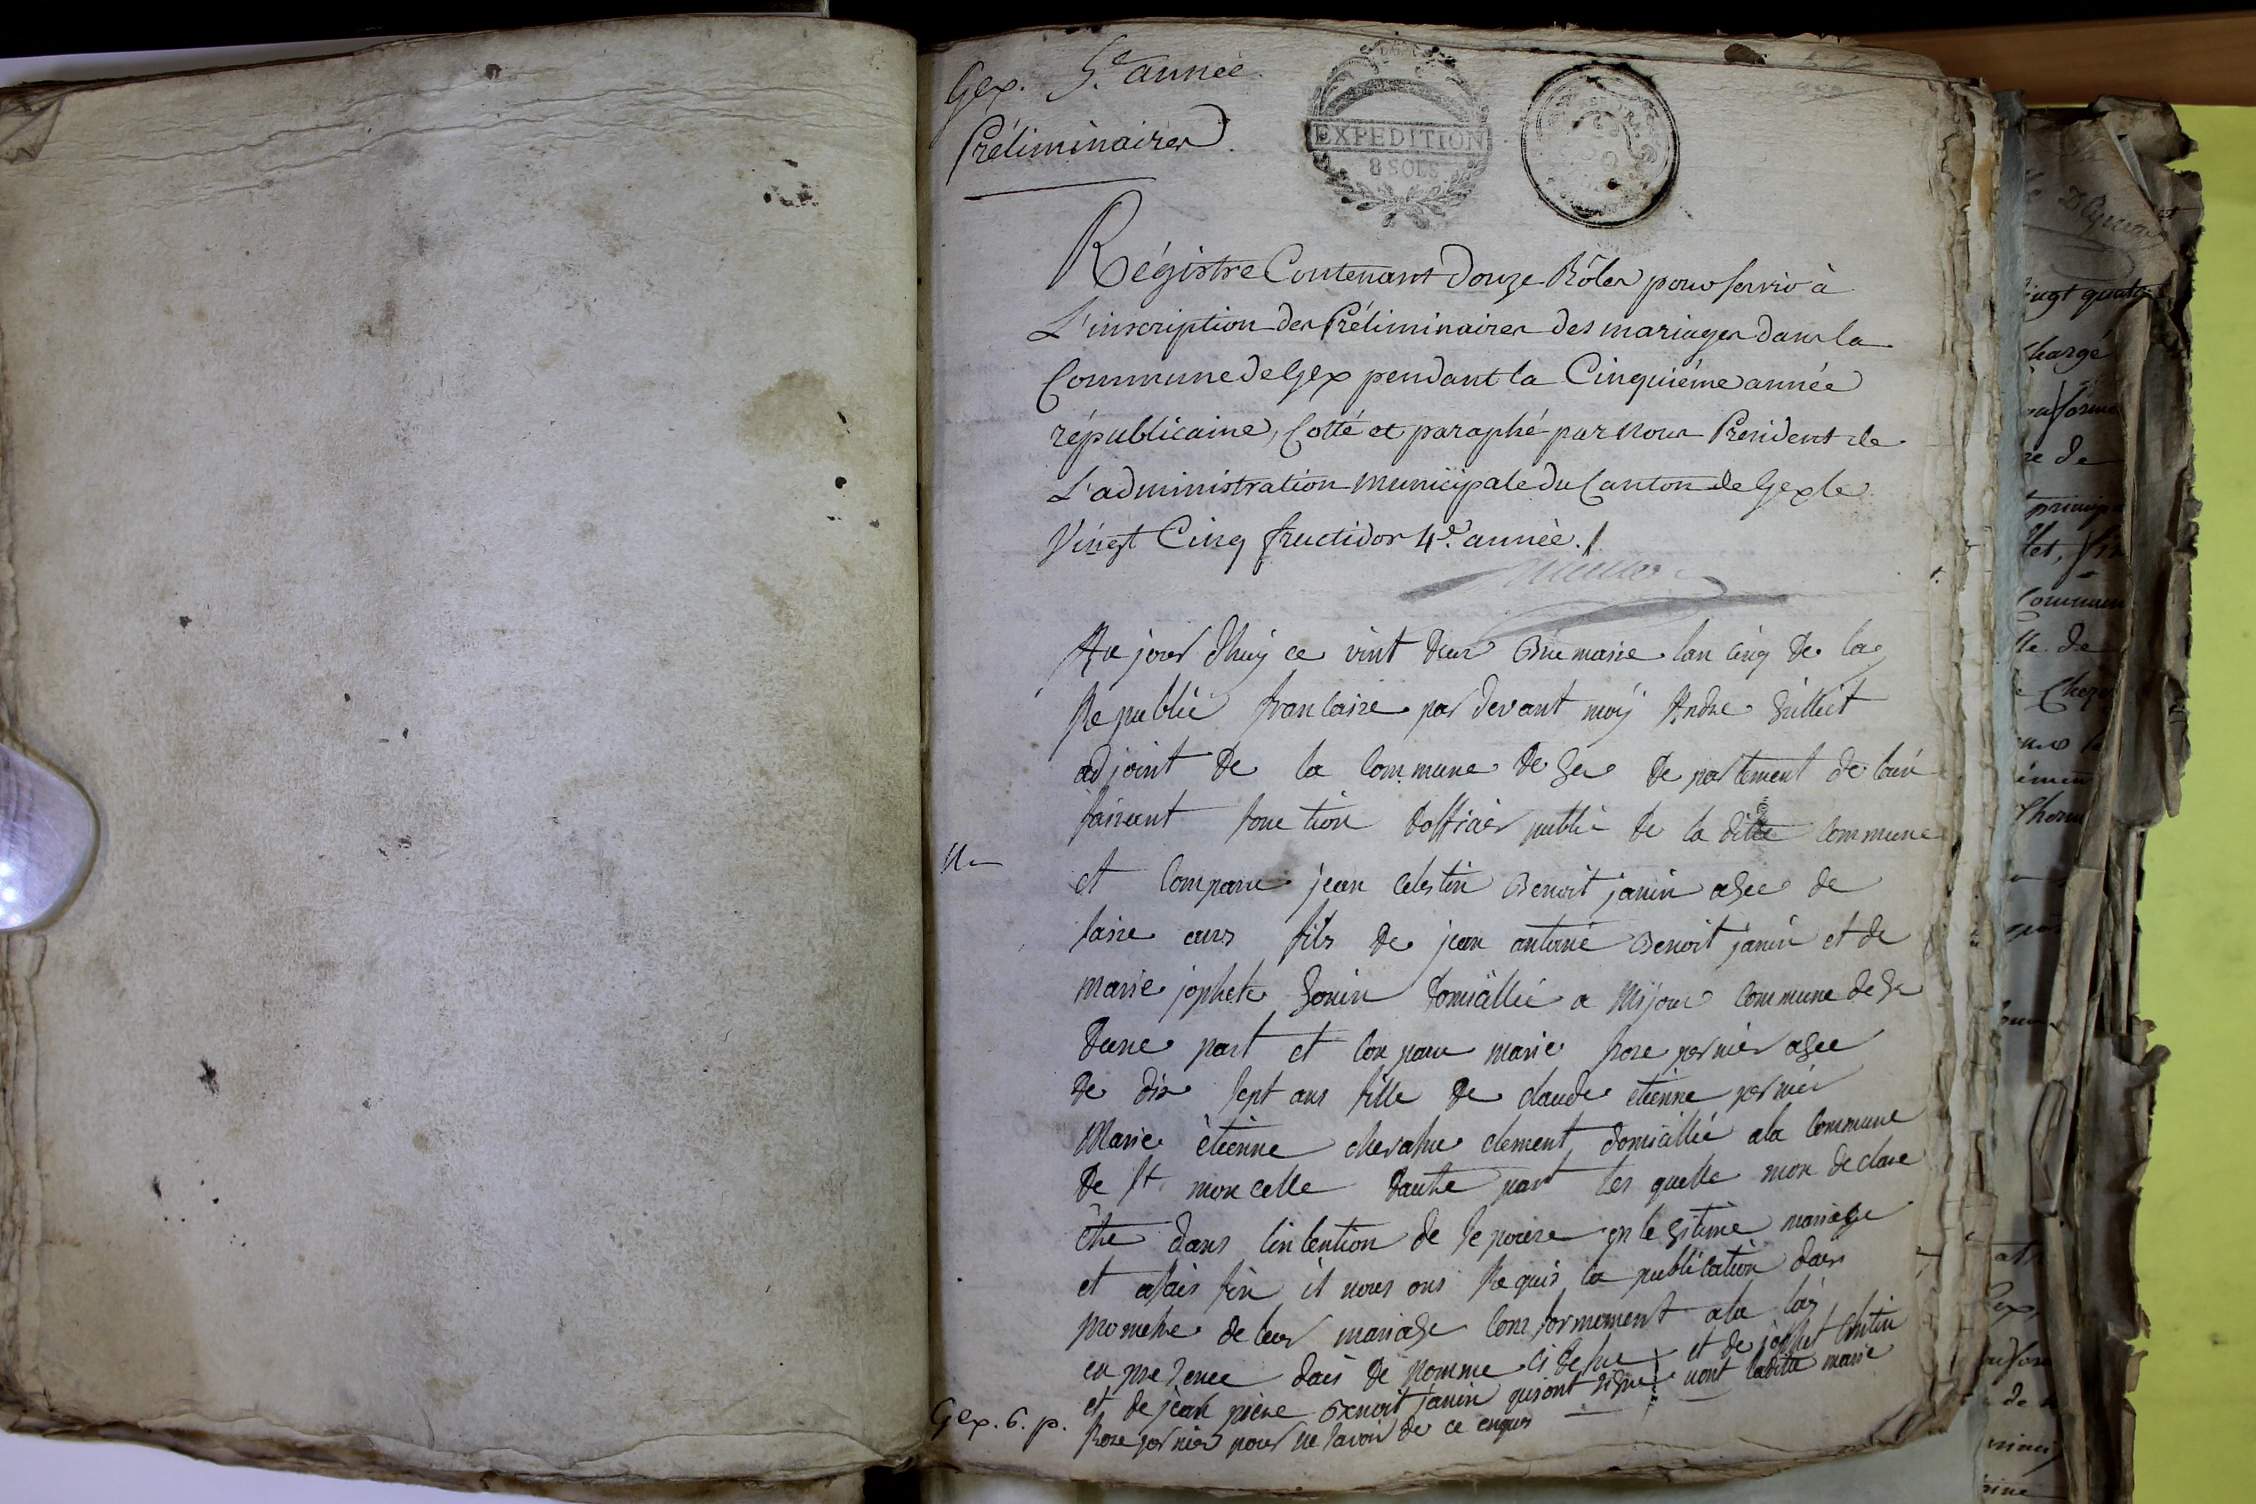 Gex. 5.e année
Préliminaires
EXPEDITION
8 SOLS
Régistre Contenant Douze Rôles pour servir à
L'inscription des Préliminaires des mariages dans la
Commune de Gex pendant la Cinquiéme année
républicaine, Cotté et paraphé par nous Président de
L'administration municipale du Canton de Gex le
Vingt Cinq fructidor 4.e année./.
Au jour dhuy ce vint deux Brumaire lan cinq de la
Republié francaise par devant moÿ Andre
adjoint de la Commune de Gex departement de lain
faisant fonction dofficier public de la ditte commune
et comparu jean celestin Benoit janin agee de
saise ans fils de jean antoine Benoit janin et de
marie josphete Gonin domicillié a Mijoux commune de Gex
dune part et comparu marie Rose pernier agee
de dix sept ans fille de claude etienne pernier
Marie étienne clement domicillié a la commune
de St moncelle dautre part les quelle mon declare
être dans lintention de se pouser en legitime mariage
et a fin il nous ons Requis la publication
promesse de leur mariage conformement a la loy
en presence de nomme ci desu et de josphet
et de jean piere Benoit janin qui ont signe nont laditte marie
Rose pernier pour ne savoir de ce enquis
Gex. 6. p.